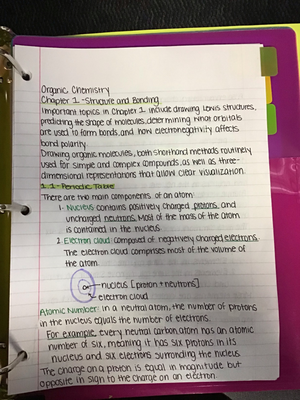 Organic Chemistry
Chapter 1 - Structure and Bonding
Important topics in Chapter 1 include drawing Lewis structures,
predicting the shape of molecules, determining what orbitals
are used to form bonds, and how electronegativity affects
bond polarity.
Drawing organic molecules, both shorthand methods routinely
used for simple and complex compounds, as well as three-
dimensional representations that allow clear visualization.
1.1 - Periodic Table
There are two main components of an atom
1. Nucleus contains positively charged protons and
uncharged neutrons. Most of the mass of the atom
is contained in the nucleus
2. Electron cloud: composed of negatively charged electrons.
The electron cloud comprises most of the volume of
the atom.
nucleus [proton + neutrons]
electron cloud
Atomic Number: in a neutral atom, the number of protons
in the nucleus equals the number of electrons.
For example, every neutral carbon atom has an atomic
number of six, meaning it has six protons in its
nucleus and six electrons surrounding the nucleus
The charge on a proton is equal in magnitude but
opposite in sign to the charge on an electron.